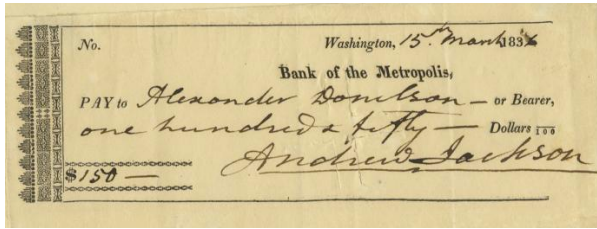 No. Washington, 15th March 1836
Bank of the Metropolis,
PAY to Alexander Donelson — or Bearer,
one hundred & fifty — Dollars /100
Andrew Jackson
$150 —